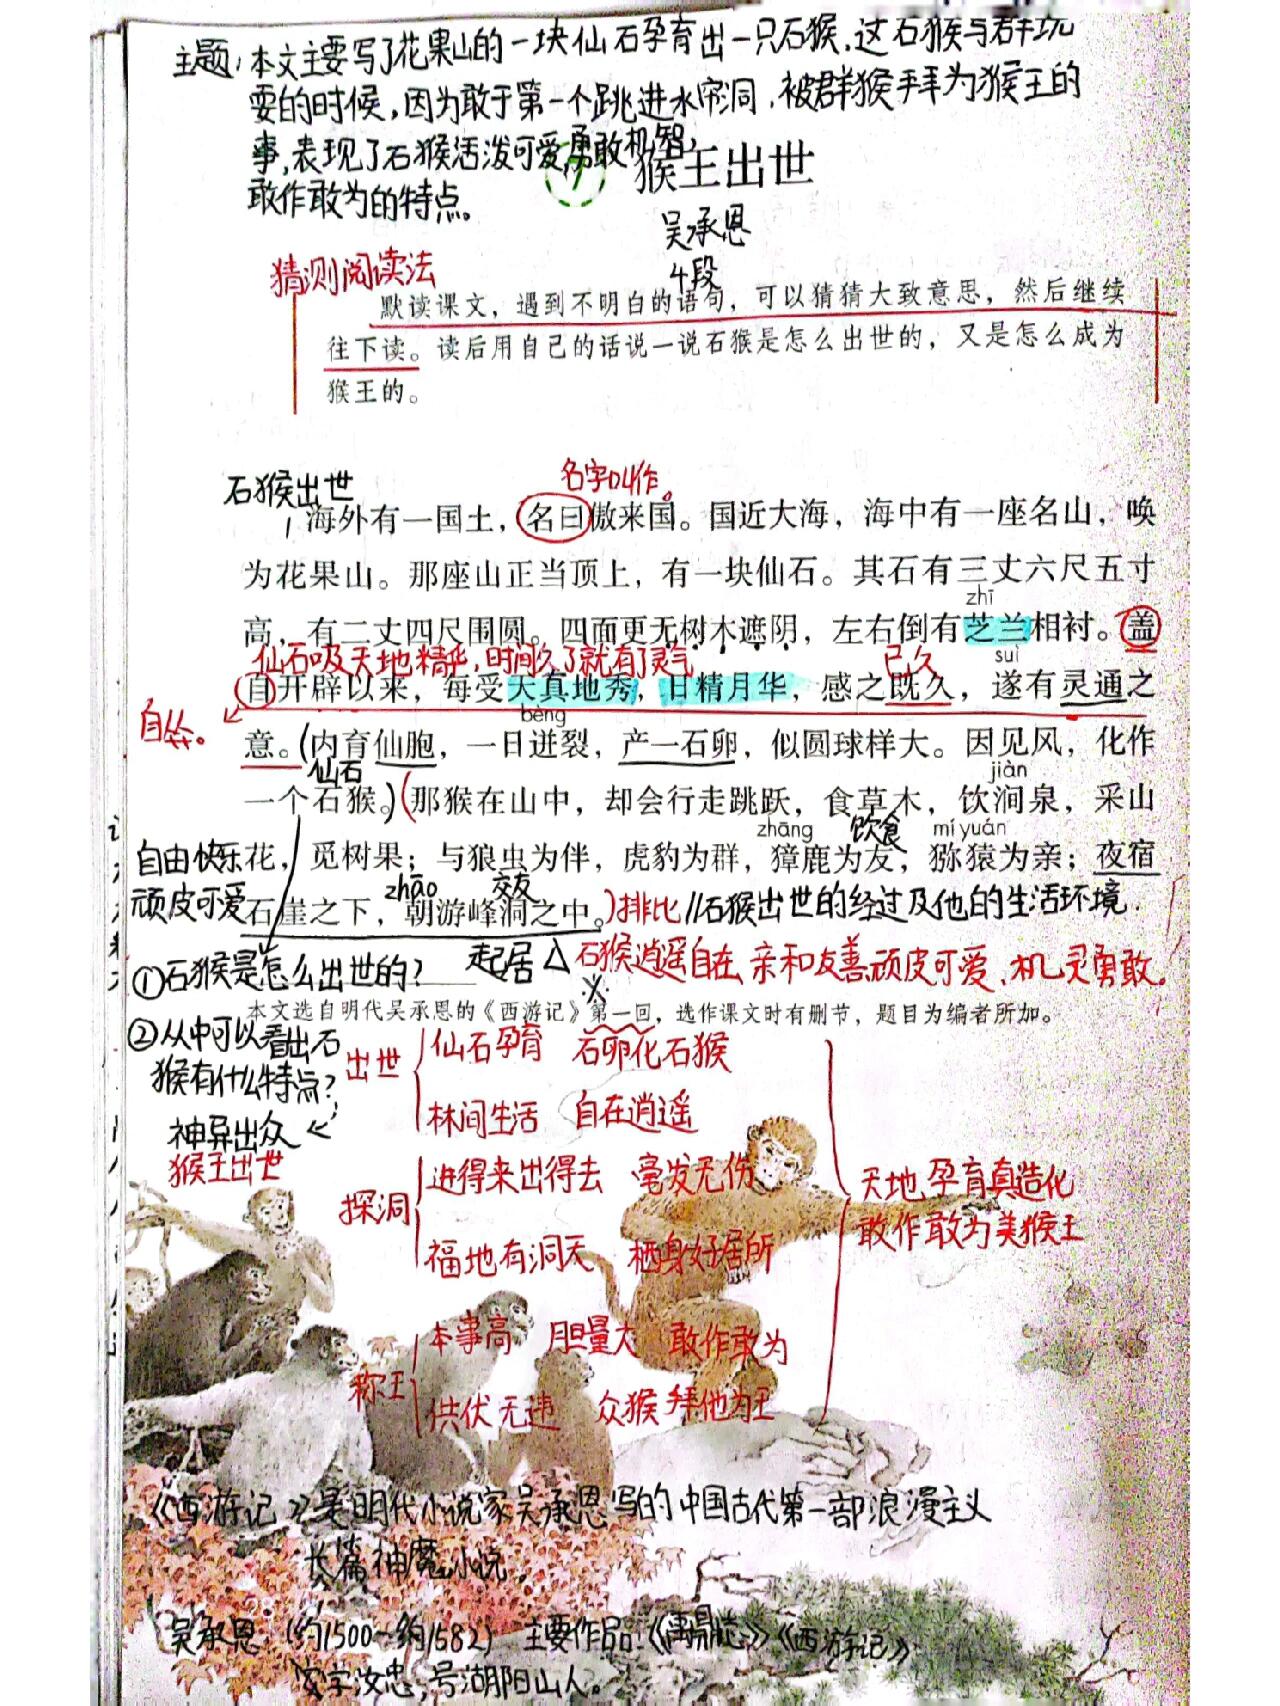 主题：本文主要写了花果山的一块仙石孕育出一只石猴，这石猴与群玩
耍的时候，因为敢于第一个跳进水帘洞，被群猴拜为猴王的
事，表现了石猴活泼可爱勇敢机智，
敢作敢为的特点。
7 猴王出世
吴承恩
4段
猜测阅读法
默读课文，遇到不明白的语句，可以猜猜大致意思，然后继续
往下读。读后用自己的话说一说石猴是怎么出世的，又是怎么成为
猴王的。
石猴出世
名字叫作。
1 海外有一国土，名曰傲来国。国近大海，海中有一座名山，唤
为花果山。那座山正当顶上，有一块仙石。其石有三丈六尺五寸
zhī
高，有二丈四尺围圆。四面更无树木遮阴，左右倒有芝兰相衬。盖
仙石吸天地精华，时间久了就有了灵气
已久
suì
自开辟以来，每受天真地秀，日精月华，感之既久，遂有灵通之
自从。
bèng
意。(内育仙胞，一日迸裂，产一石卵，似圆球样大。因见风，化作
仙石
jiàn
一个石猴。)(那猴在山中，却会行走跳跃，食草木，饮涧泉，采山
zhāng 饮食 mí yuán
自由快乐
花，觅树果；与狼虫为伴，虎豹为群，獐鹿为友，猕猿为亲；夜宿
顽皮可爱
zhāo 交友
石崖之下，朝游峰洞之中。)排比//石猴出世的经过及他的生活环境．
①石猴是怎么出世的？
起居 △ 石猴逍遥自在、亲和友善顽皮可爱、机灵勇敢。
※
本文选自明代吴承恩的《西游记》第一回，选作课文时有删节，题目为编者所加。
②从中可以看出石
猴有什么特点？
神异出众
猴王出世
出世
仙石孕育 石卵化石猴
林间生活 自在逍遥
探洞
进得来出得去 毫发无伤
福地有洞天 栖身好居所
称王
本事高 胆量大 敢作敢为
拱伏无违 众猴拜他为王
天地孕育真造化
敢作敢为美猴王
《西游记》是明代小说家吴承恩写的中国古代第一部浪漫主义
长篇神魔小说。
吴承恩（约1500-约1582） 主要作品：《禹鼎志》《西游记》
字汝忠，号射阳山人。